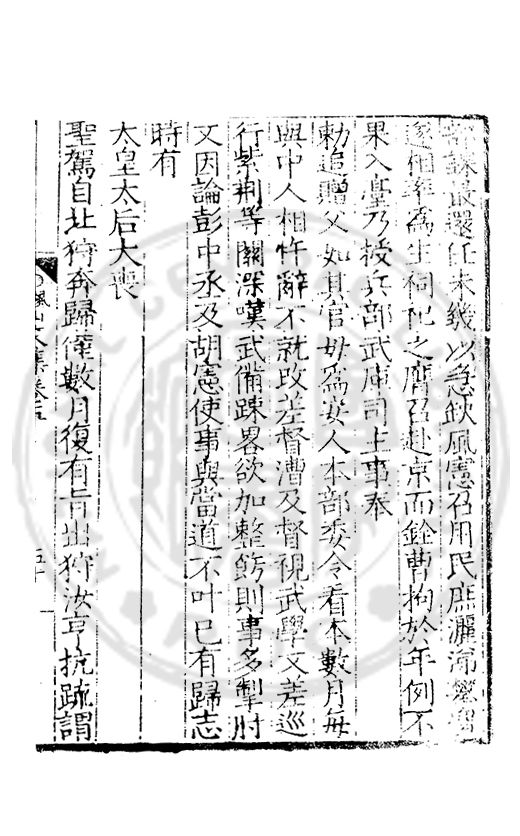 部課最還任未幾以急欽風憲召用民庶灑涕攀留
遂相率為生祠祀之膺召赴京而銓曹拘於年例不
果入臺乃授兵部武庫司主事奉
勅追贈父如其官母為安人本部委令看本數月每
與中人相忤辭不就改差督漕及督視武學又差巡
行紫荆等關深嘆武備踈畧欲加整飭則事多掣肘
又因論彭中丞及胡憲使事與當道不叶已有歸志
時有
太皇太后大喪
聖駕自北狩奔歸僅數月復有旨出狩汝亨抗疏謂
楓山文集卷五
五十